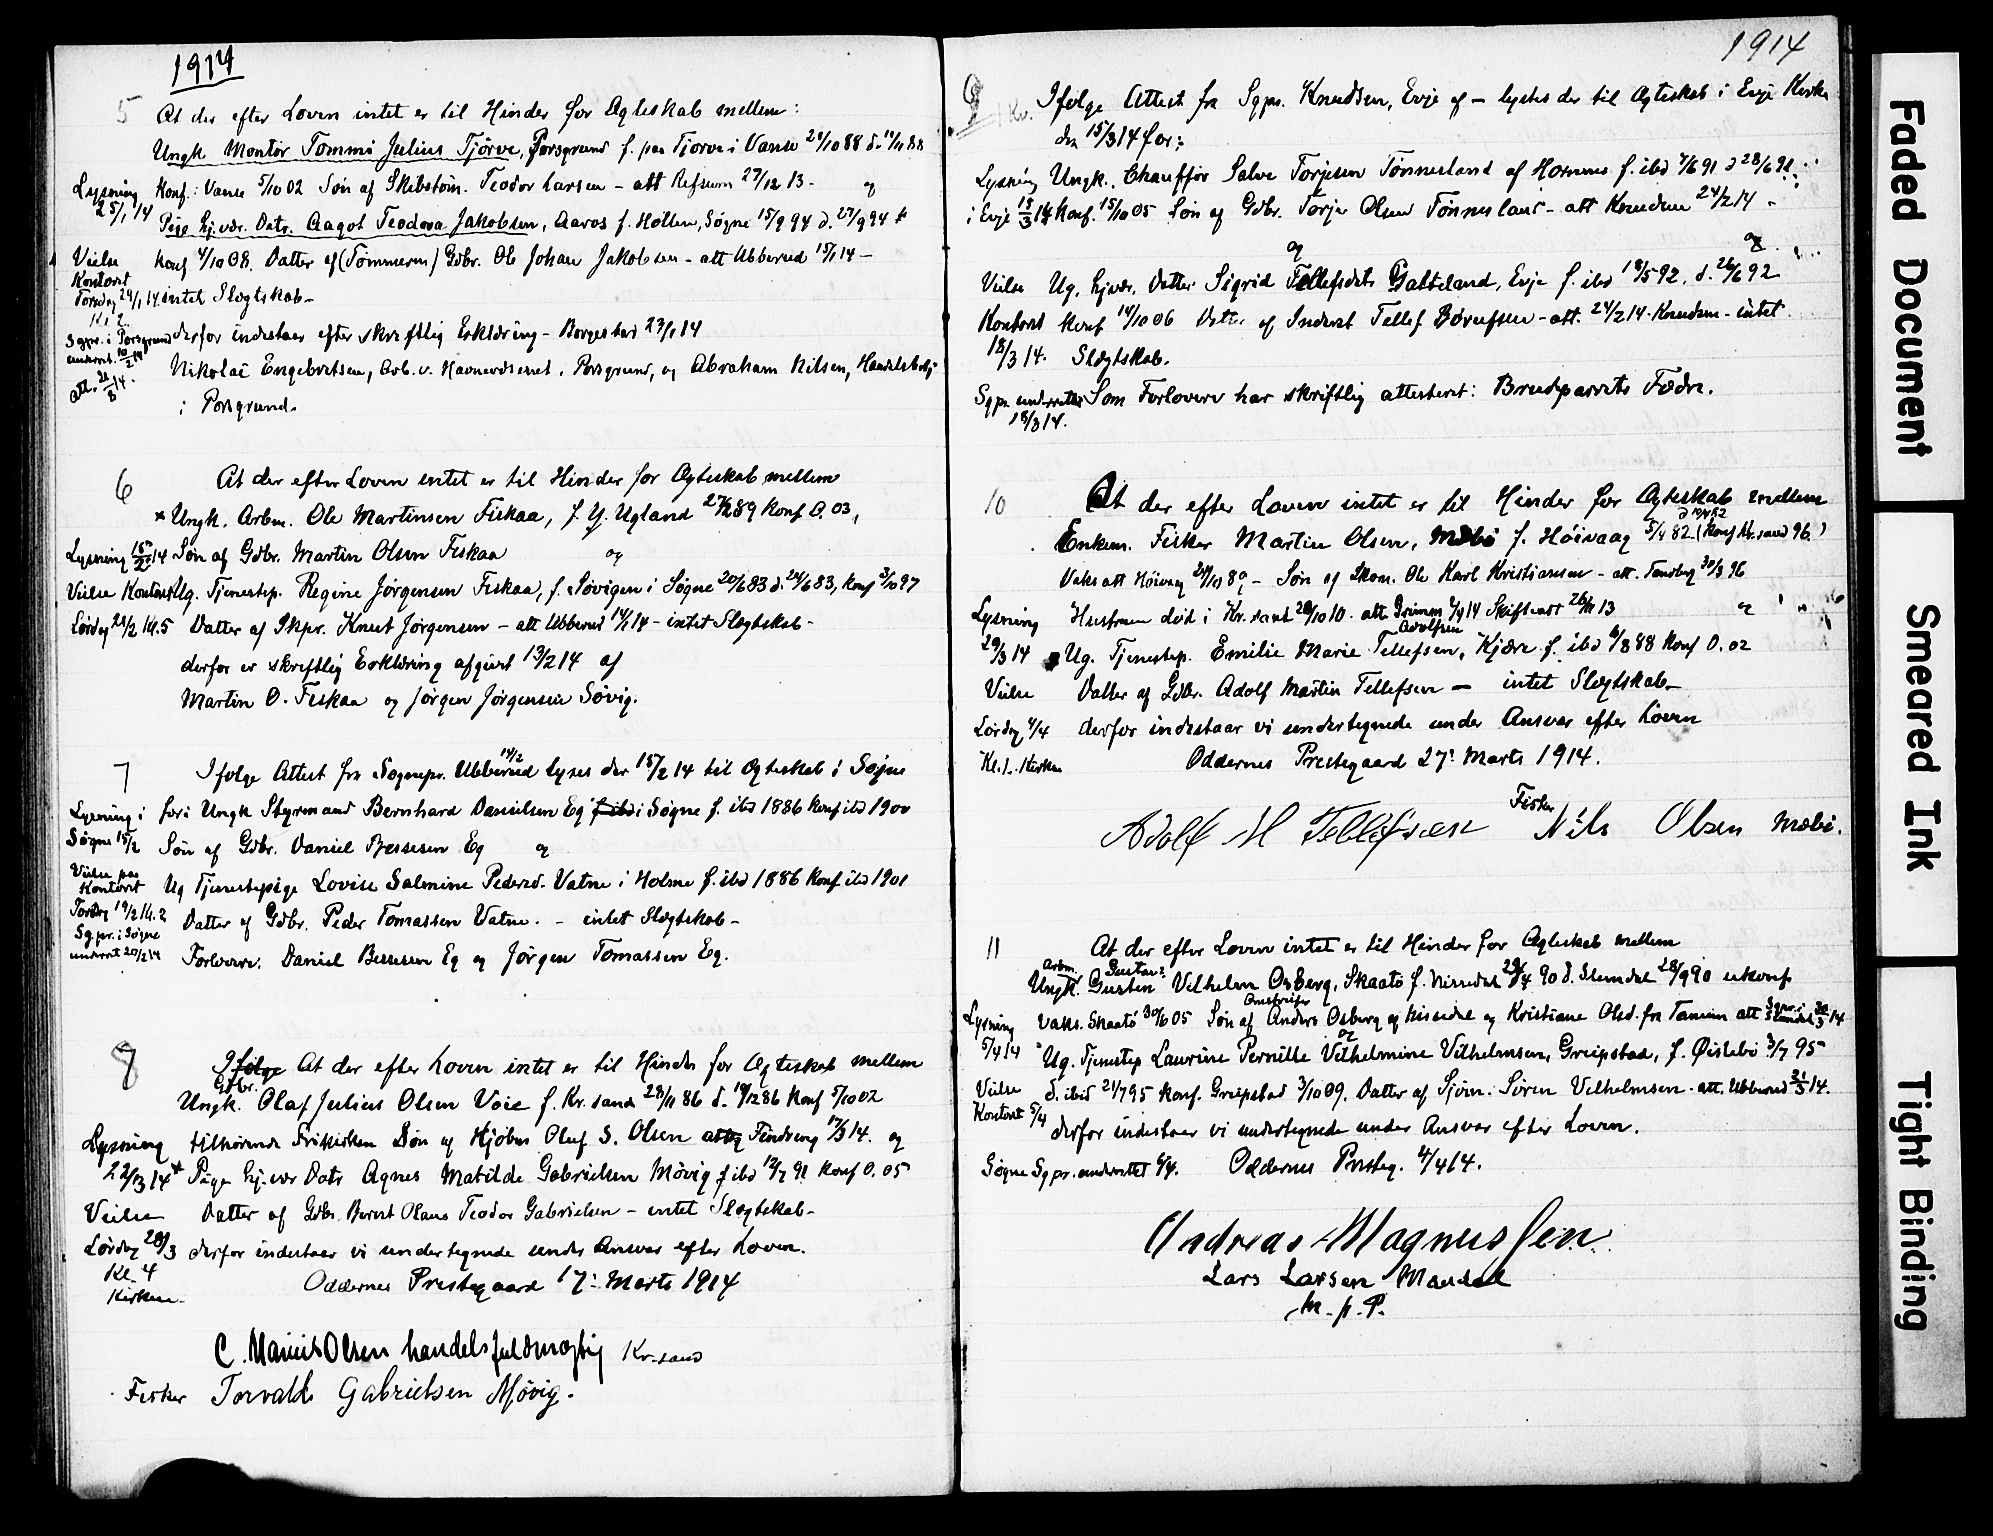 1914
5 At der efter Loven intet er til Hinder for Ægteskab mellem:
Ungk. Montør Tommi Julius Tjörve, Porsgrund f. paa Tjorve i Vanse 24/10 88 d. 14/11 88
Lysning 25/1 14
Konf: Vanse 5/10 02 Søn af Skibstøm. Teodor Larsen - att Refsum 27/12 13. og
Pige hj.vær. Datr. Aagot Teodora Jakobsen, Aaros f. Hollen, Søgne 15/9 94 d. 27/9 94
Vielse Kontoret
Konf 4/10 08. Datter af (Tømmerm) Gdbr. Ole Johan Jakobsen - att Ubberud 15/1 14 -
Torsdag 29/1 14. intet Slægtskab -
Kl. 2.
Sgpr. i Porsgrund underret. 10/2 14
derfor indestaar efter skriftlig Erklæring - Borgestad 23/1 14
att. 21/8 14.
Nikolai Engebretsen, Arb. v. Havnevæsenet, Porsgrund, og Abraham Nilsen, Handelsbetj.
i Porsgrund.
6 At der efter Loven intet er til Hinder for Ægteskab mellem
× Ungk. Arbm. Ole Martinsen Fiskaa, f. Y. Ugland 27/12 89 Konf O. 03,
Lysning 15/2 14 Søn af Gdbr. Martin Olsen Fiskaa og
Vielse Kontoret Ug. Tjenestep. Regine Jørgensen Fiskaa, f. Søvigen i Søgne 20/6 83 d. 24/6 83, Konf 3/10 97
Lørdag 28/2 Kl. 5 Datter af Skpr. Knut Jørgensen - att Ubberud 14/1 14 - intet Slægtskab -
derfor er skriftlig Erklæring afgivet 13/2 14 af
Martin O. Fiskaa og Jørgen Jørgensen Søvig.
7 Ifølge Attest fra Sognepr. Ubberud 14/2 lyses der 15/2 14 til Ægteskab i Søgne
Lysning i Søgne 15/2
for: Ungk Styrmand Bernhard Danielsen Eg f. ibd i Søgne f. ibd 1886 Konf ibd 1900
Søn af Gdbr. Daniel Berresen Eg og
Vielse paa Kontoret
Ug Tjenestepige Lovise Salmine Pedersd. Vatne i Holme f. ibd 1886 Konf. ibd 1901
Torsdag 19/2 Kl. 2 Datter af Gdbr. Peder Tomassen Vatne. - intet Slægtskab -
Sg.pr. i Søgne underret 20/2 14
Forlovere. Daniel Berresen Eg og Jørgen Tomassen Eg.
8 Ifølge At der efter Loven intet er til Hinder for Ægteskab mellem
Gdbr.
Ungk. Olaf Julius Olsen Voie f. Kr.sand 28/11 86 d. 19/12 86 Konf 5/10 02
Lysning tilhørende Frikirken Søn af Hjøbm Oluf S. Olsen att Findseng 17/3 14. og
22/3 14 × Pige hj. vær Datr Agnes Matilde Gabrielsen Møvig f ibd 12/7 91 Konf O. 05
Vielse Datter af Gdbr. Berent Olaus Teodor Gabrielsen - intet Slægtskab -
Lørdag 28/3 derfor indestaar vi undertegnede under Ansvar efter Loven.
Kl. 4 Kirken.
Oddernes Prestegaard 17: Marts 1914
C. Marius Olsen handelsfuldmægtig Kr.sand
Fisker Torvald Gabrielsen Møvig.
1914
9 Ifølge Attest fra Sgpr. Knudsen, Evje af - lystes der til Ægteskab i Evje Kirke
den 15/3 14 for:
Lysning Ungk. Chauffør Salve Torjesen Tønnesland af Hornnes f. ibd 7/6 91 d 28/6 91
i Evje 15/3 14 Konf. 15/10 05 Søn af Gdbr. Torje Olsen Tønnesland - att Knudsen 24/2 14 -
og
Vielse Ug. hj.vær. Datter Sigrid Tellefsdatr Gauteland, Evje f. ibd 18/5 92. d. 26/6 92
Kontoret Konf 14/10 06 Datter af Inderst Tellef Børufsen - att. 24/2 14. Knudsen - intet
18/3 14. Slægtskab.
Sgpr. underrettet 18/3 14.
Som Forlovere har skriftlig attesteret: Brudeparrets Fædre.
10 At der efter Loven intet er til Hinder for Ægteskab mellem
Enkem. Fisker Martin Olsen, Mæbø f. Höivaag 5/4 82 (Konf Kr.sand 96)
Vaks att Höivaag - Søn af Skom. Ole Karl Kristiansen - att. Tandberg 30/3 96
Lysning Hustruen død i Kr.sand 20/10 10. att Grimm 2/4 14 Skifteatt 26/11 13 og
29/3 14 Ug. Tjenestep. Emilie Marie Adolfsen Tellefsen, Kjære f. ibd 6/8 88 Konf O. 02
Vielse Datter af Gdbr. Adolf Martin Tellefsen - intet Slægtskab -
Lørdag 4/4 derfor indestaar vi undertegnede under Ansvar efter Loven
Kl. 1. Kirken Oddernes Prestegaard 27: Marts 1914.
Adolf M Tellefsen Fisker Nils Olsen Mæbø.
11 At der efter Loven intet er til Hinder for Ægteskab mellem
Arbm. Gustav:
Ungk. Gusten Vilhelm Osberg, Skaatø f. Nissedal 29/4 90 d. 28/9 90 ukonf
Lysning 5/4 14
Vaks. Skaatø 30/6 05 Søn af Anders Osberg og Kristiane Olsd. fra att
og
Ug. Tjenestep Laurine Pernille Vilhelmine Vilhelmsen, Greipstad, f. Øislebø 3/7 95
Vielse d. ibid 21/7 95 Konf. Greipstad 3/10 09. Datter af Sjøm. Søren Vilhelmsen - att. Ubberud 31/3 14.
Kontoret 5/4 derfor indestaar vi undertegnede under Ansvar efter Loven.
Søgne Sgpr. underrettet 6/4. Oddernes Presteg. 4/4 14.
Andreas Magnussen.
Lars Larsen Mandal
m. p. P.
Faded Document
Smeared Ink
Tight Binding